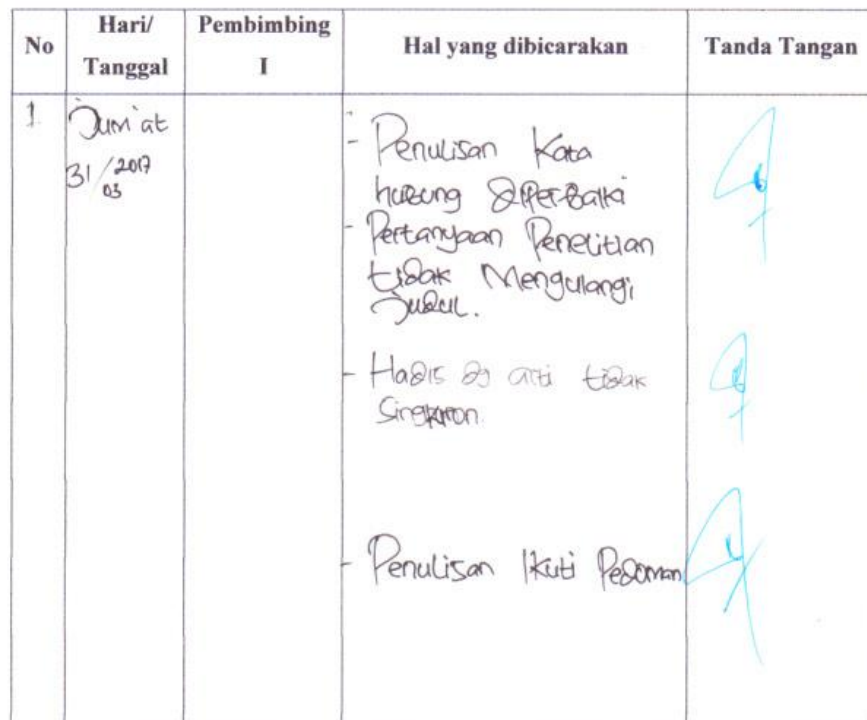 No Hari/ Tanggal Pembimbing I Hal yang dibicarakan Tanda Tangan
1. Jum'at
31/03 2017
- Penulisan Kata
hubung diperbaiki
- Pertanyaan Penelitian
tidak Mengulangi
Judul.
- Hadis dg arti tidak
- Penulisan Ikuti Pedoman